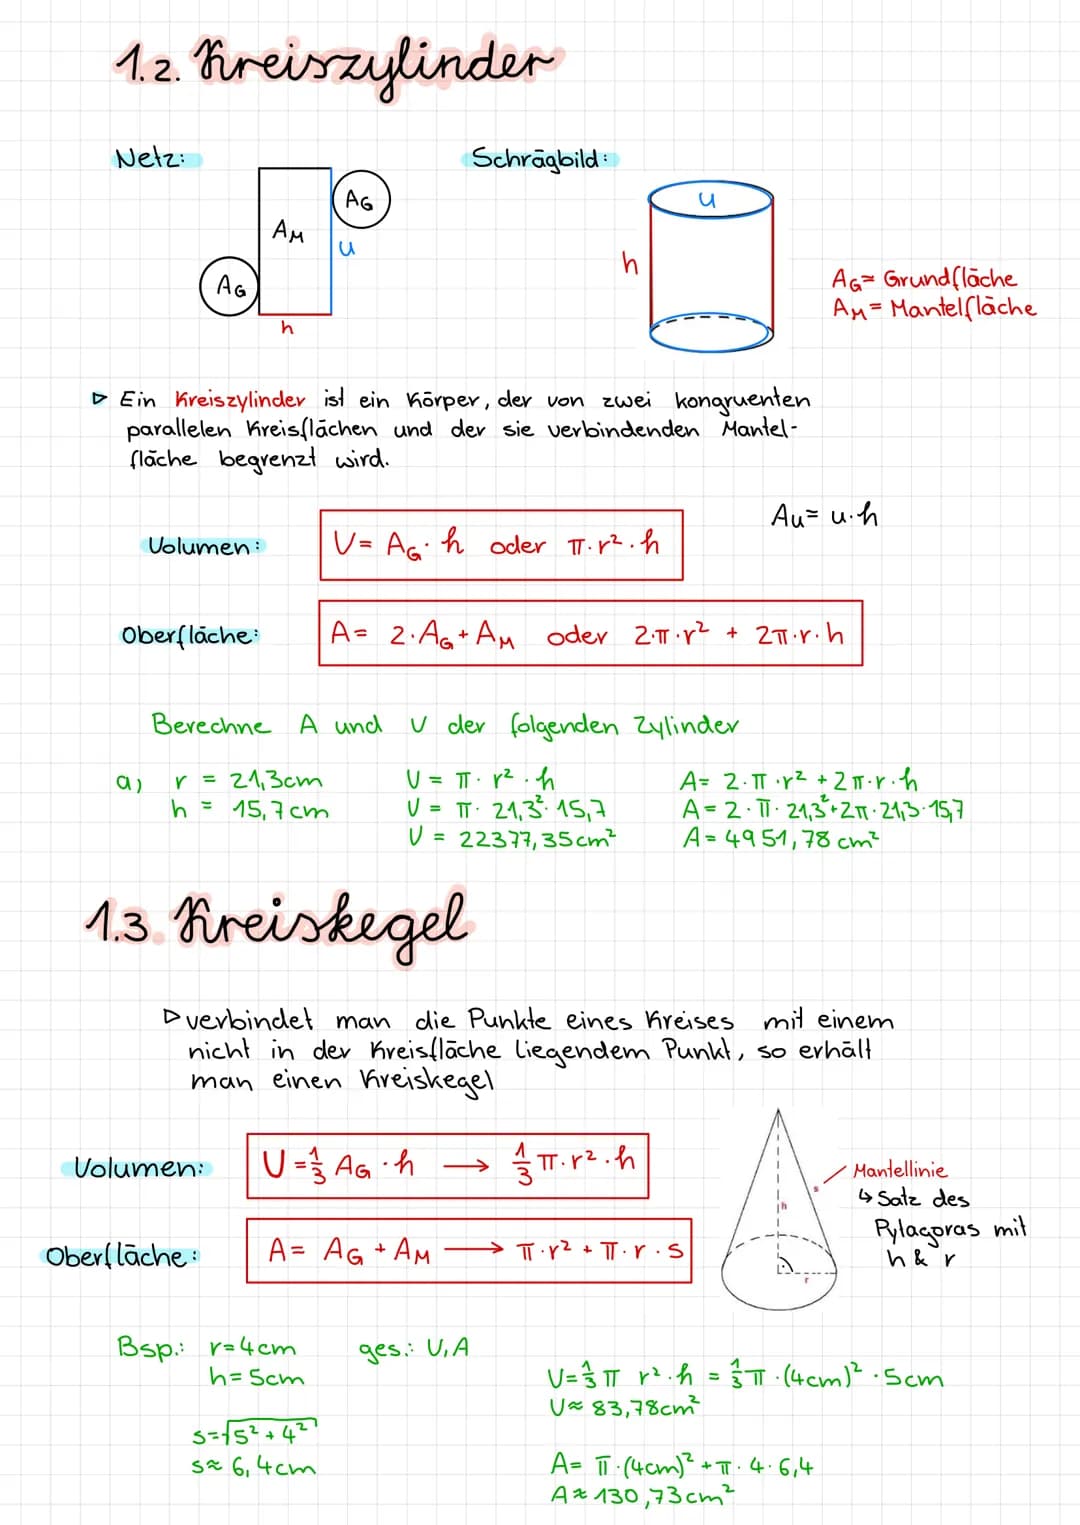 1.2. Kreiszylinder
Netz:
Schrägbild:
AG
AM
u
AG
h
u
h
AG= Grundfläche
AM= Mantelfläche
▷ Ein Kreiszylinder ist ein Körper, der von zwei kongruenten
parallelen Kreisflächen und der sie verbindenden Mantel-
fläche begrenzt wird.
Au= u·h
Volumen:
V= AG· h oder π·r²·h
Oberfläche:
A= 2·AG+AM oder 2·π·r² + 2π·r·h
Berechne A und V der folgenden Zylinder
a) r = 21,3cm
h = 15,7cm
V = π· r² ·h
V = π· 21,3²· 15,7
V = 22377,35cm²
A= 2·π·r² +2π·r·h
A= 2·π· 21,3²+2π·21,3·15,7
A= 4951,78 cm²
1.3. Kreiskegel
▷verbindet man die Punkte eines Kreises mit einem
nicht in der Kreisfläche liegendem Punkt, so erhält
man einen Kreiskegel
Volumen:
V=⅓ AG ·h → ⅓ π·r²·h
Oberfläche:
A= AG + AM → π·r² + π·r·s
s
h
r
Mantellinie
↳ Satz des
Pylagoras mit
h & r
Bsp.: r=4cm
h=5cm
ges.: V,A
s=√5²+4²
s≈ 6,4cm
V=⅓π r²·h = ⅓π·(4cm)²·5cm
V≈ 83,78cm²
A= π·(4cm)²+π·4·6,4
A≈ 130,73cm²